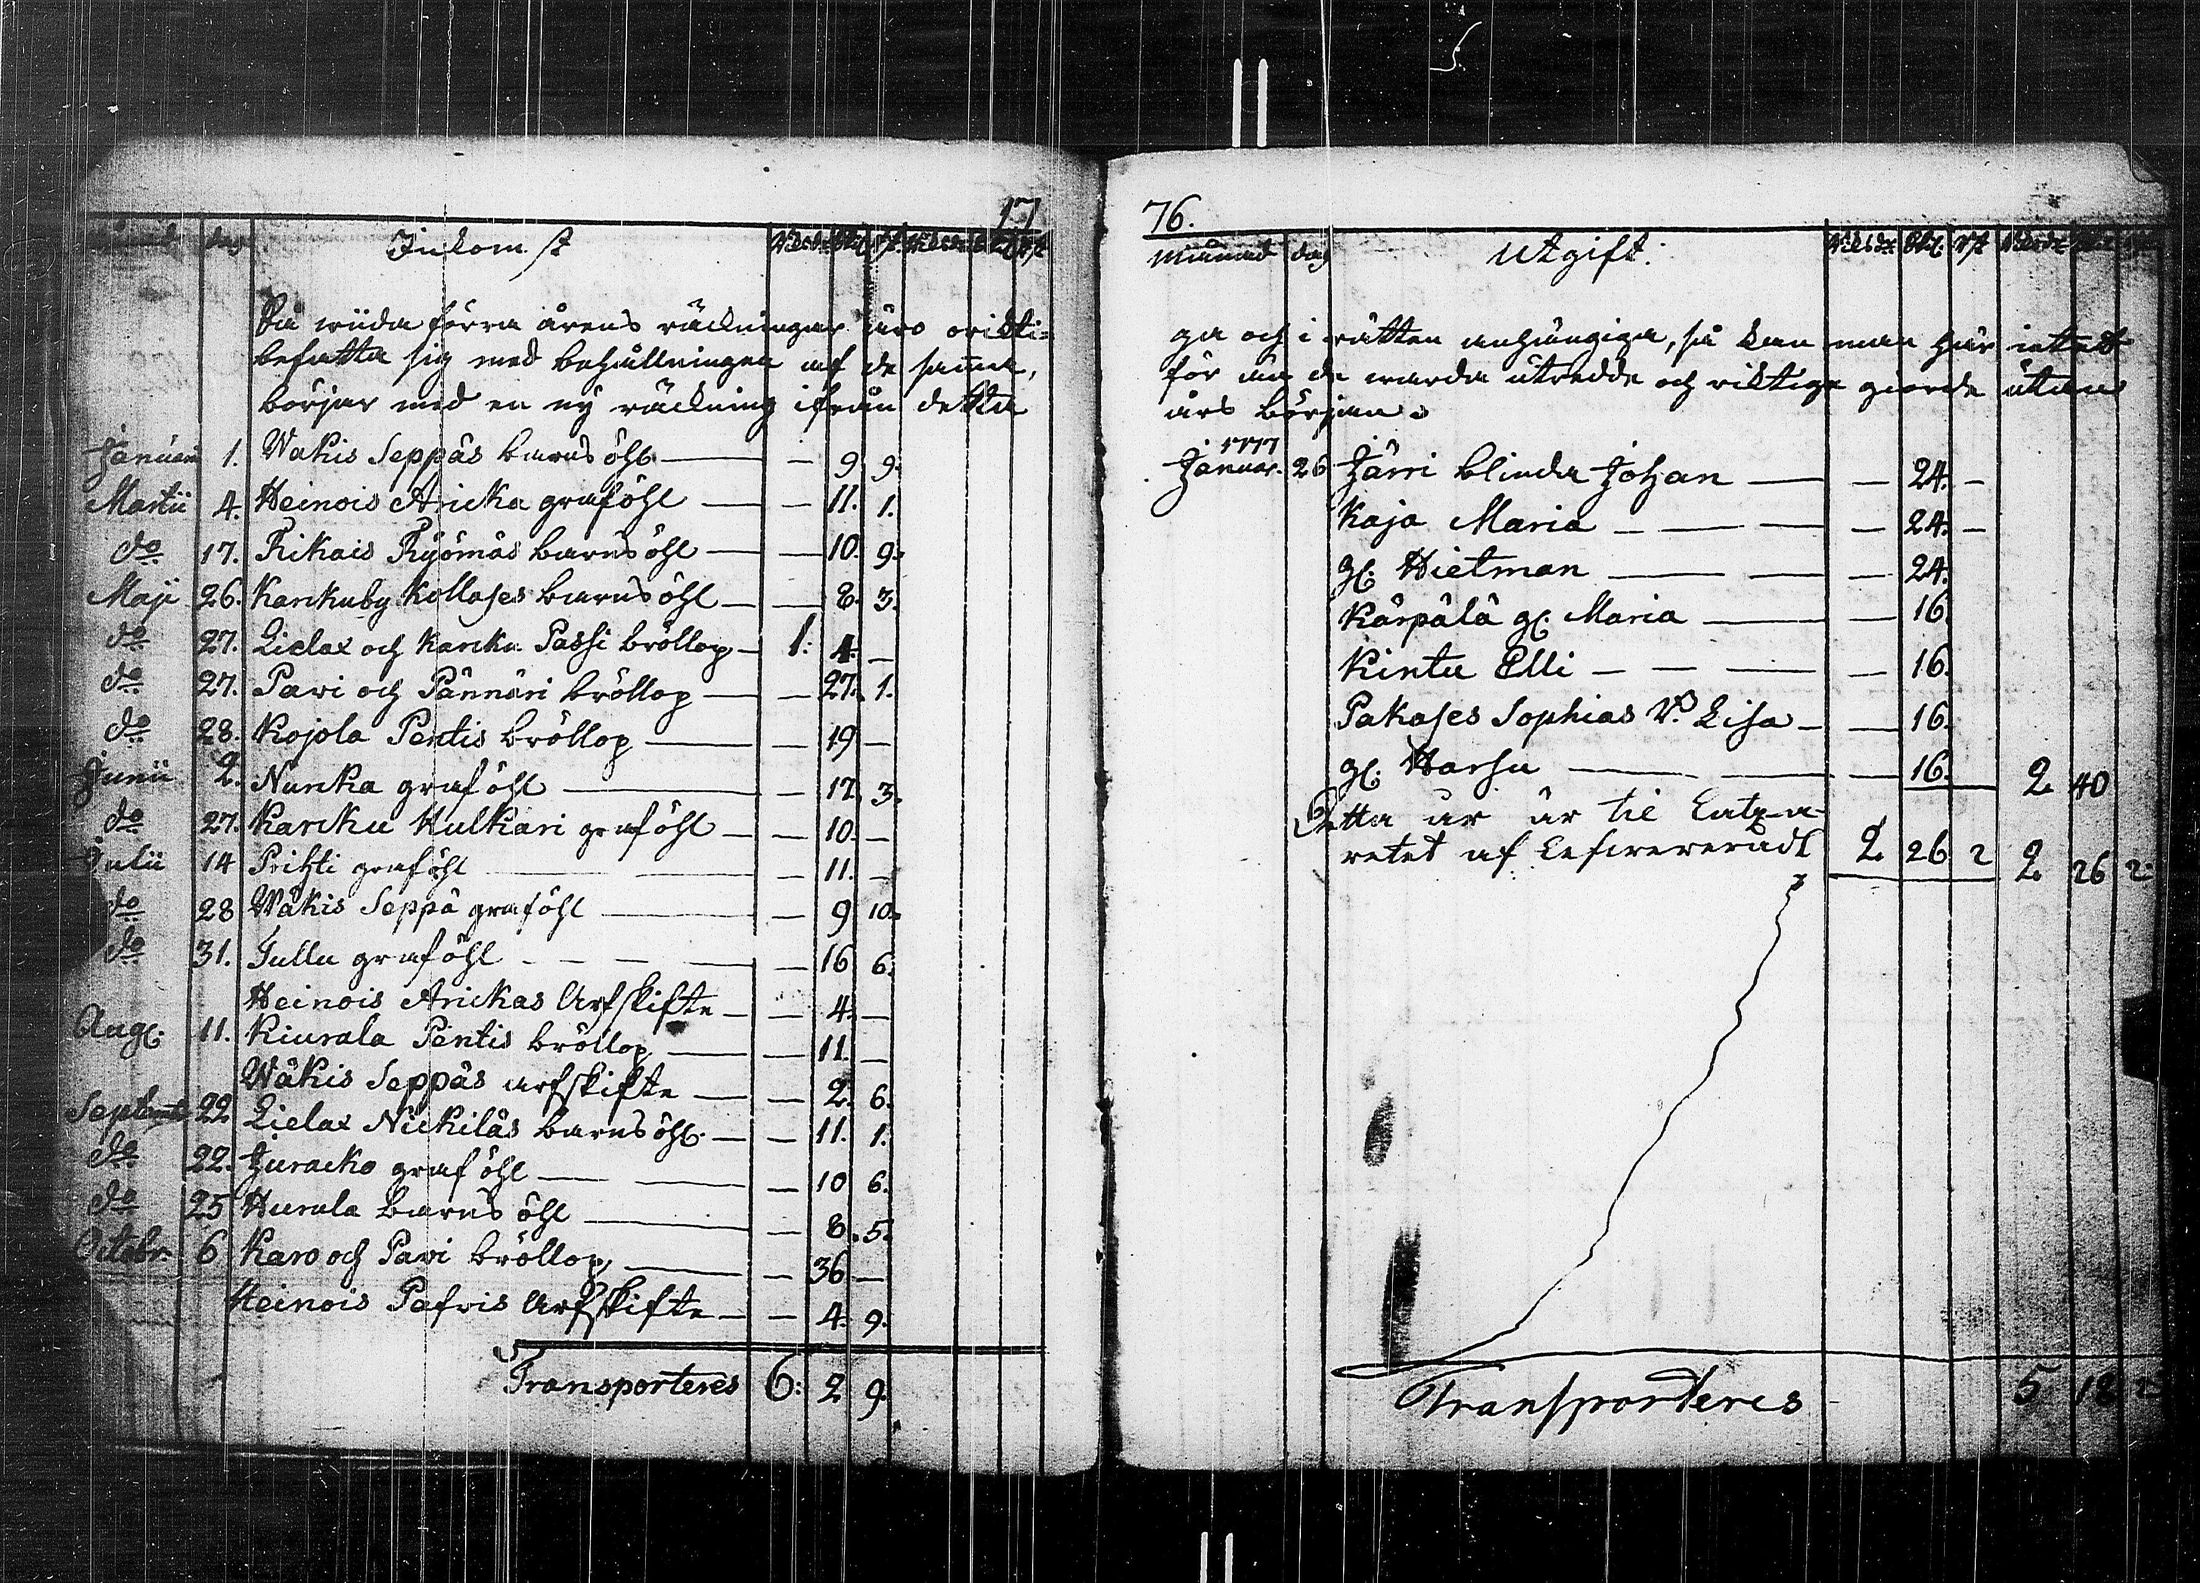 17
dag Inkomst Riksdr
Då wiida förra årens räckningar äro orikti=
befatta sig med behållningen af de samma,
börjar med en ny räckning ifrån detta
Januari 1. Wäkis Seppäs barns öhl — — 9 9.
Martii 4. Heinois Aricka graföhl — — 11. 1.
do 17. Rikais Ryömäs barns öhl — — 10. 9.
Maji 26. Karckuby Kollases barns öhl — — 8. 3.
do 27. Lielax och Karcku Passi bröllop — 1: 4. —
do 27. Pavi och Pännäri bröllop — — 27. 1.
do 28. Kojola Pentis bröllop — — 19 —
Junii 2. Nurcka graföhl — — 17. 3.
do 27. Karcku Hulkari graföhl — — 10. —
Julii 14 Prihti graföhl — — 11. —
do 28 Wäkis Seppä graföhl — — 9 10.
do 31. Jullu graföhl — — — 16 6.
Heinois Arickas Arfskifte — — 4. —
Aug. 11. Kiurala Pentis bröllop — — 11. —
Wäkis Seppäs arfskifte — — 2. 6.
Septemb 22 Lielax Nickiläs barns öhl. — — 11. 1.
do 22. Juracko graföhl — — 10 6.
do 25 Hurula barns öhl — — 8. 5.
Octobr. 6 Karo och Pavi bröllop — — 36 —
Heinois Pafvis Arfskifte — — 4. 9.
Transporteres 6: 2 9.
76.
Månad dag Utgift. Riksdr
ga och i rätten anhängiga, så kan man här intet
för än de warda utredde och riktige giorde utan
års början.
1777
Januar. 26 Järri blinda Johan — — 24. —
Kaja Maria — — — 24. —
gl. Hietman — — — 24.
Kärpälä gl. Maria — — 16.
Kintu Elli — — — — 16.
Pakases Sophias Lisa — — 16.
gl. Harsu — — — 16. — 2. 40
Detta år är til Latza-
retet af 2. 26 2 2. 26 2.
Transporteres 5 18 2